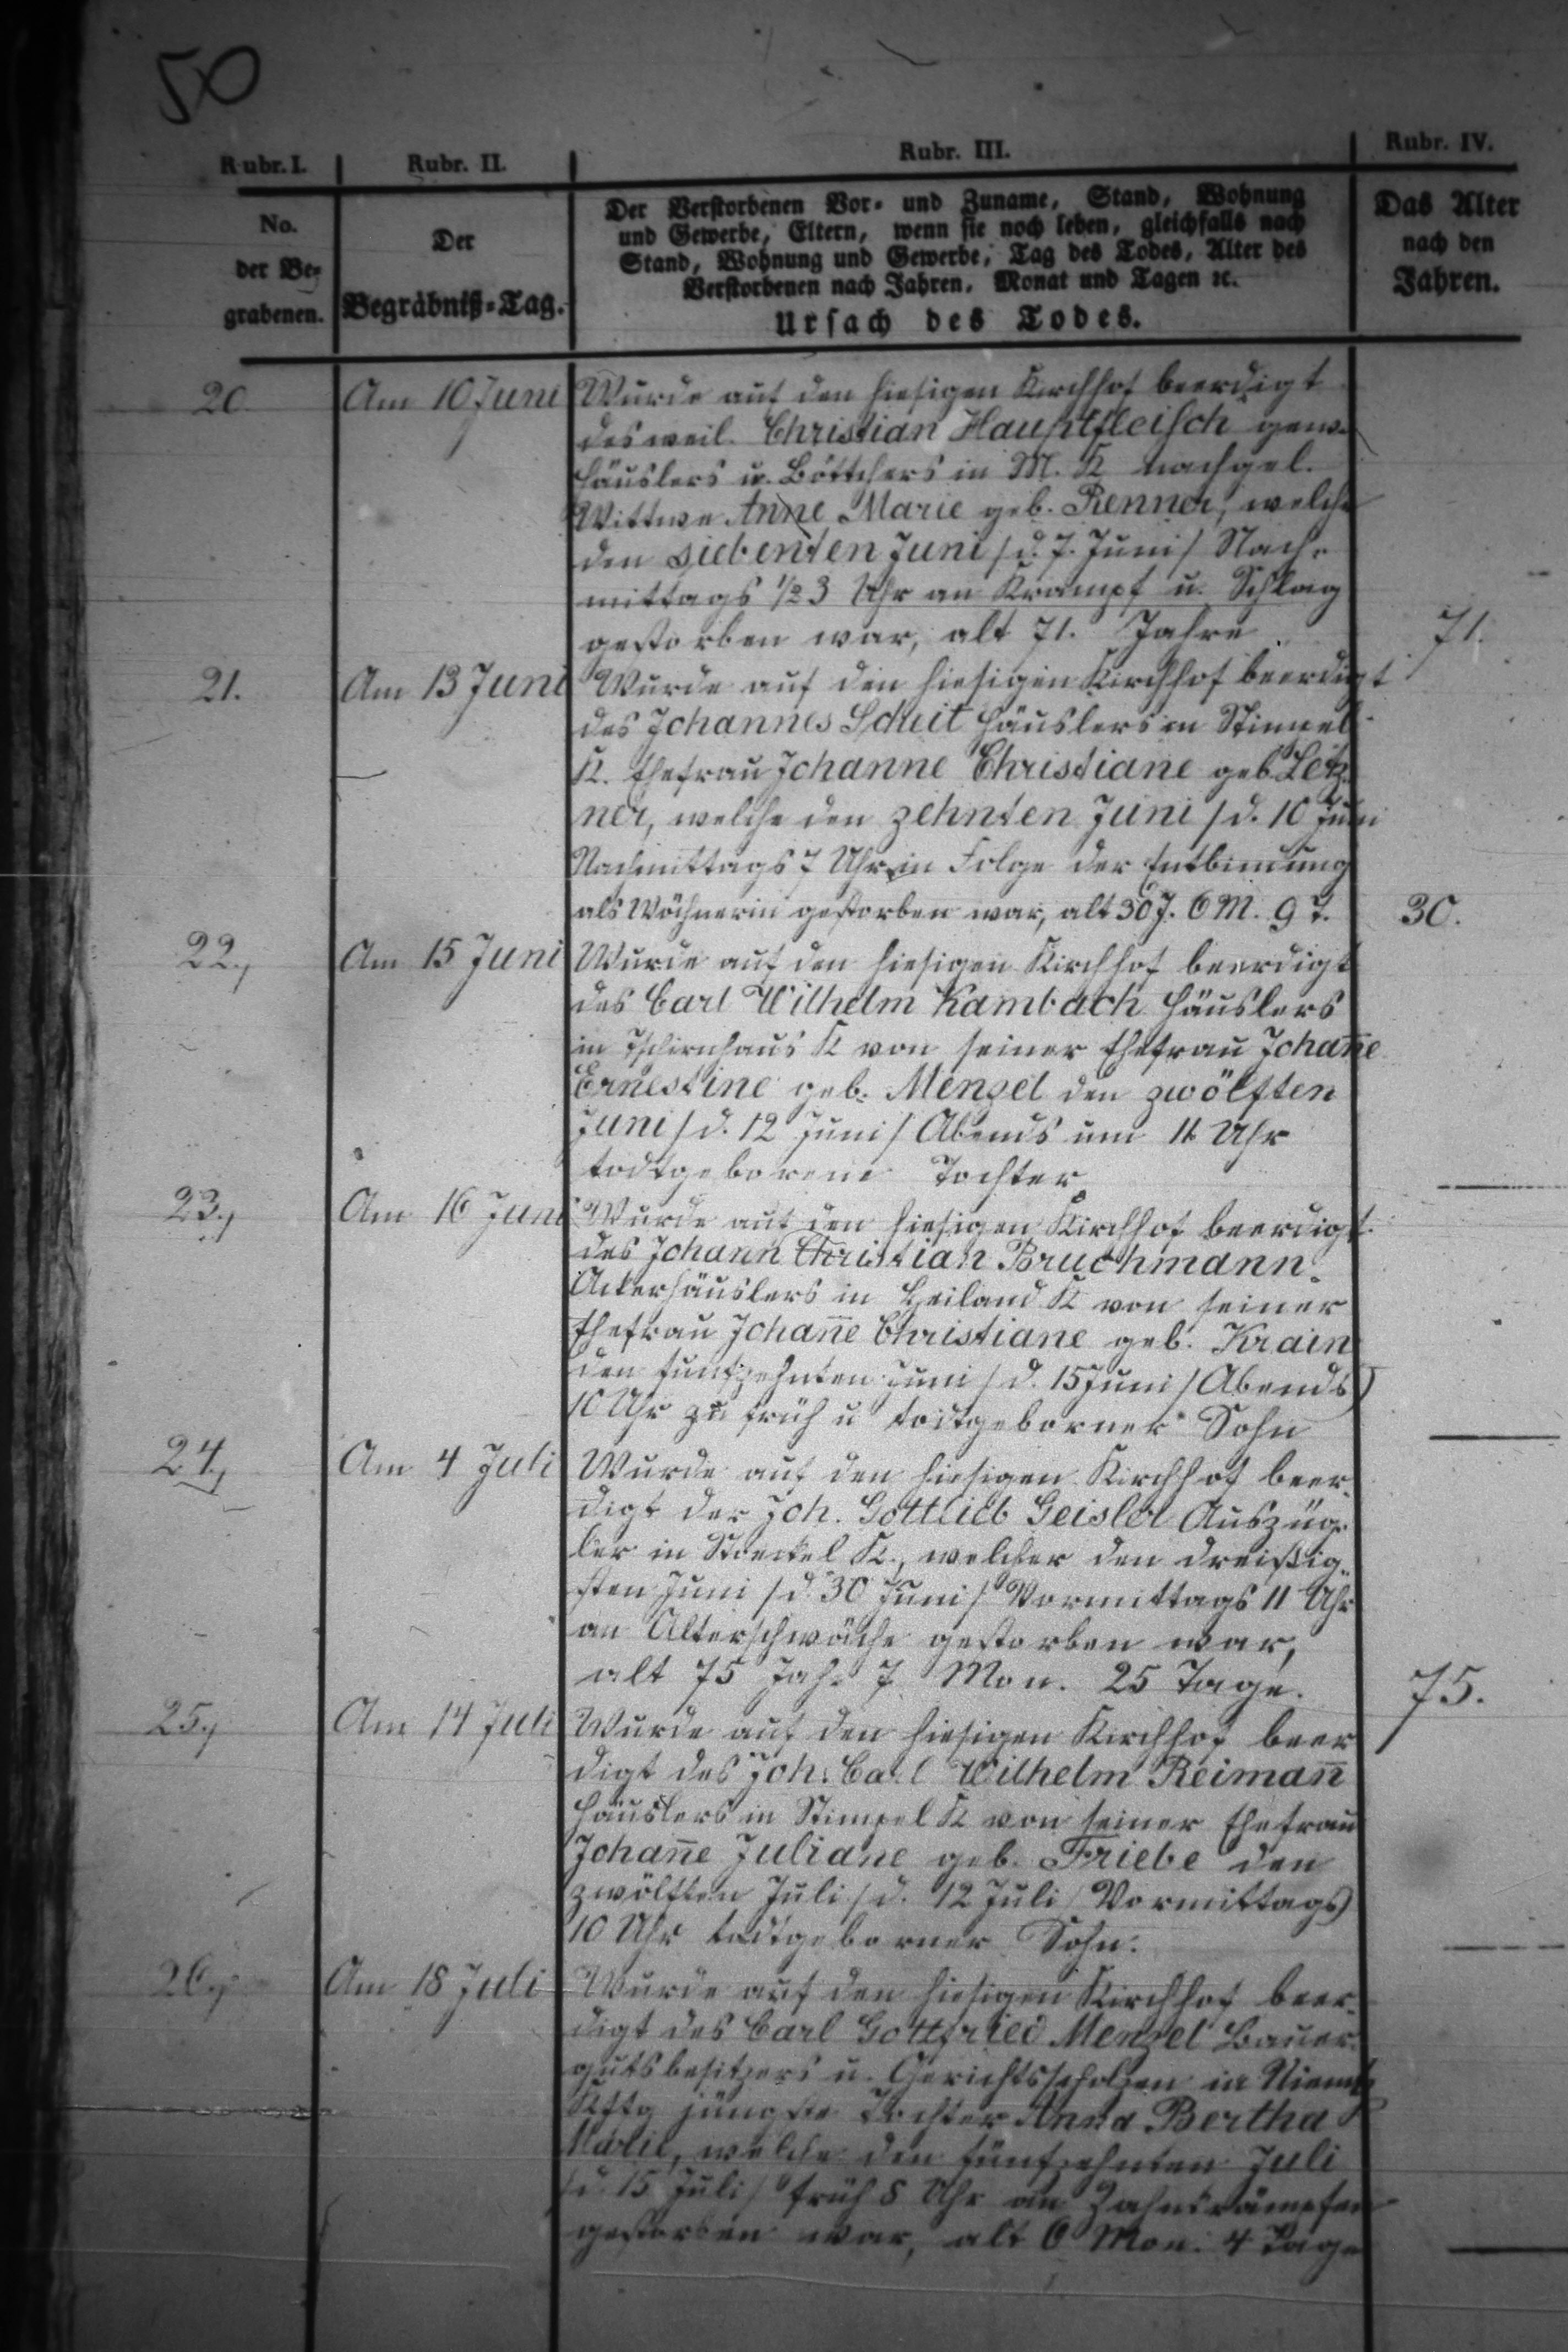 50
Rubr. I. Rubr. II. Rubr. III. Rubr. IV.
No. der Be- grabenen.
Der Begräbniß-Tag.
Der Verstorbenen Vor- und Zuname, Stand, Wohnung
und Gewerbe, Eltern, wenn sie noch leben, gleichfalls nach
Stand, Wohnung und Gewerbe, Tag des Todes, Alter des
Verstorbenen nach Jahren, Monat und Tagen ꝛc.
Ursach des Todes.
Das Alter
nach den
Jahren.
20. Am 10 Juni Wurde auf den hiesigen Kirchhof beerdigt
des weil. Christian Hauptfleisch gew.
Häuslers u. Böttchers in M. K nachgel.
Wittwe Anne Marie geb. Renner, welche
den siebenten Juni /d. 7. Juni/ Nach-
mittags ½3 Uhr an Krampf u. Schlag
gestorben war, alt 71. Jahre 71.
21. Am 13 Juni Wurde auf den hiesigen Kirchhof beerdigt
des Johannes Scheit Häuslers in Stimpel
K. Ehefrau Johanne Christiane geb. Letz-
ner, welche den zehnten Juni /d. 10 Juni
Nachmittags 7 Uhr in Folge der Entbindung
als Wöchnerin gestorben war, alt 30 J. 6 M. 9 T. 30.
22., Am 15 Juni Wurde auf den hiesigen Kirchhof beerdigt
des Carl Wilhelm Kambach Häuslers
in Tschirnhaus K von seiner Ehefrau Johan̄e
Ernestine geb. Menzel den zwölften
Juni /d. 12 Juni/ Abends um 11 Uhr
todtgeborene Tochter
23., Am 16 Juni Wurde auf den hiesigen Kirchhof beerdigt
des Johann Christian Bruchmann
Ackerhäuslers in Heiland K von seiner
Ehefrau Johan̄e Christiane geb. Krain
den funfzehnten Juni /d. 15 Juni/ Abends
10 Uhr zu früh u todtgeborner Sohn
24., Am 4 Juli Wurde auf den hiesigen Kirchhof beer-
digt der Joh. Gottlieb Geisler Auszüg-
ler in Stoeckel K., welcher den dreißig-
sten Juni /d. 30 Juni/ Vormittags 11 Uhr
an Alterschwäche gestorben war,
alt 75 Jahr 7 Mon. 25 Tage. 75.
25., Am 14 Juli Wurde auf den hiesigen Kirchhof beer
digt des Joh. Carl Wilhelm Reiman̄
Häuslers in Stimpel K von seiner Ehefrau
Johan̄e Juliane geb. Friebe den
zwölften Juli /d. 12 Juli/ Vormittags
10 Uhr todtgeborner Sohn.
26., Am 18 Juli Wurde auf den hiesigen Kirchhof beer-
digt des Carl Gottfried Menzel Bauer-
gutsbesitzers u. Gerichtsscholzen in
jüngste Tochter Anna Bertha
Marie, welche den fünfzehnten Juli
/d. 15 Juli/ früh 8 Uhr an Zahnkrämpfen
gestorben war, alt 6 Mon. 4 Tage